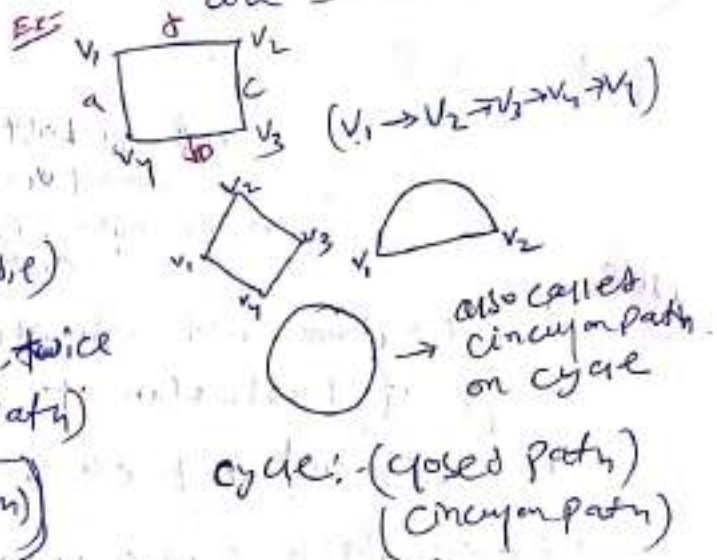 Ex:-
V1 V2
a c
V4 b V3
(V1 → V2 → V3 → V4 → V1)
V2
V1 V3
V4
V1 V2
,e)
twice
ath)
→ also called
circular path
or cycle
cycle:- (closed path)
(circular path)